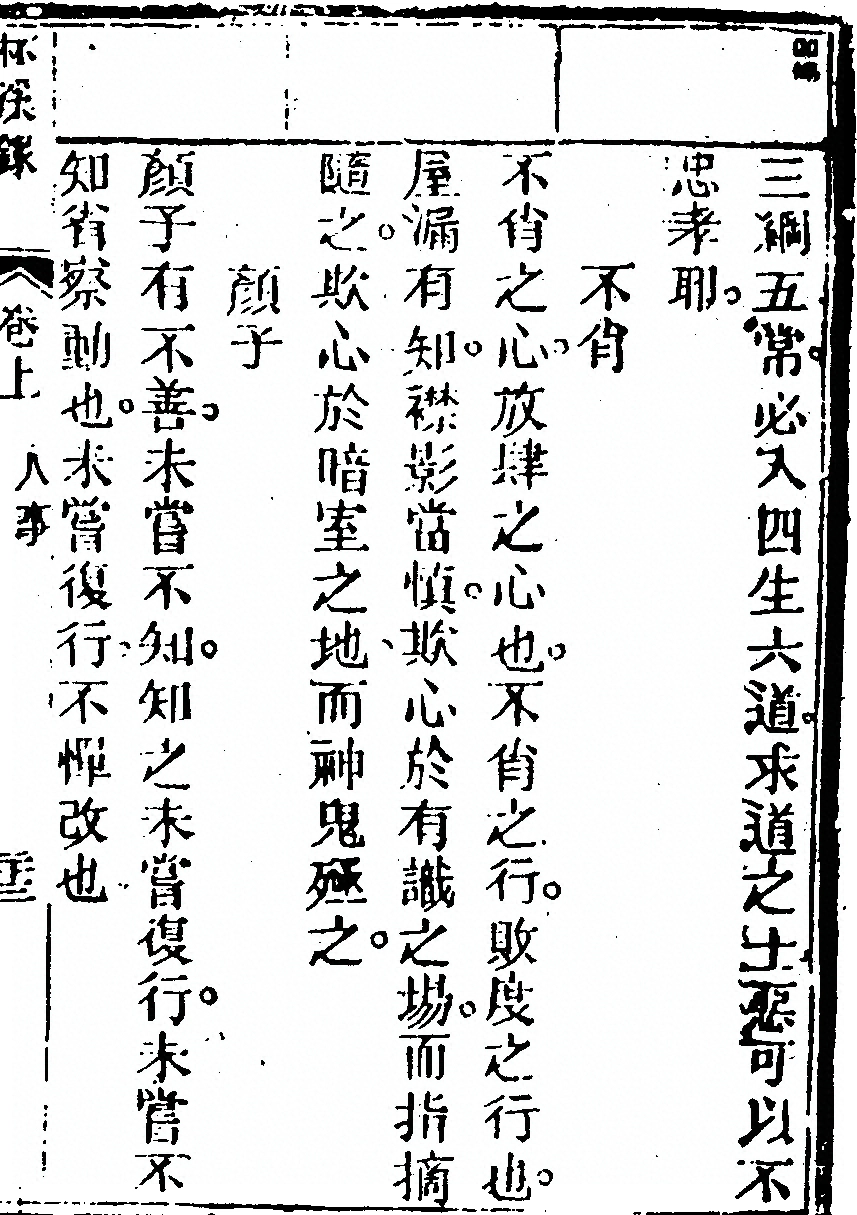 三綱五常。必入四生六道。求道之士惡可以不
忠孝耶。
不肖
不肖之心。放肆之心也。不肖之行。敗度之行也。
屋漏有知。襟影當慎。欺心於有識之場。而指摘
隨之。欺心於暗室之地、而神鬼殛之。
顏子
顏子有不善。未嘗不知。知之未嘗復行。未嘗不
知省察動也。未嘗復行、不憚改也
卷上
人事